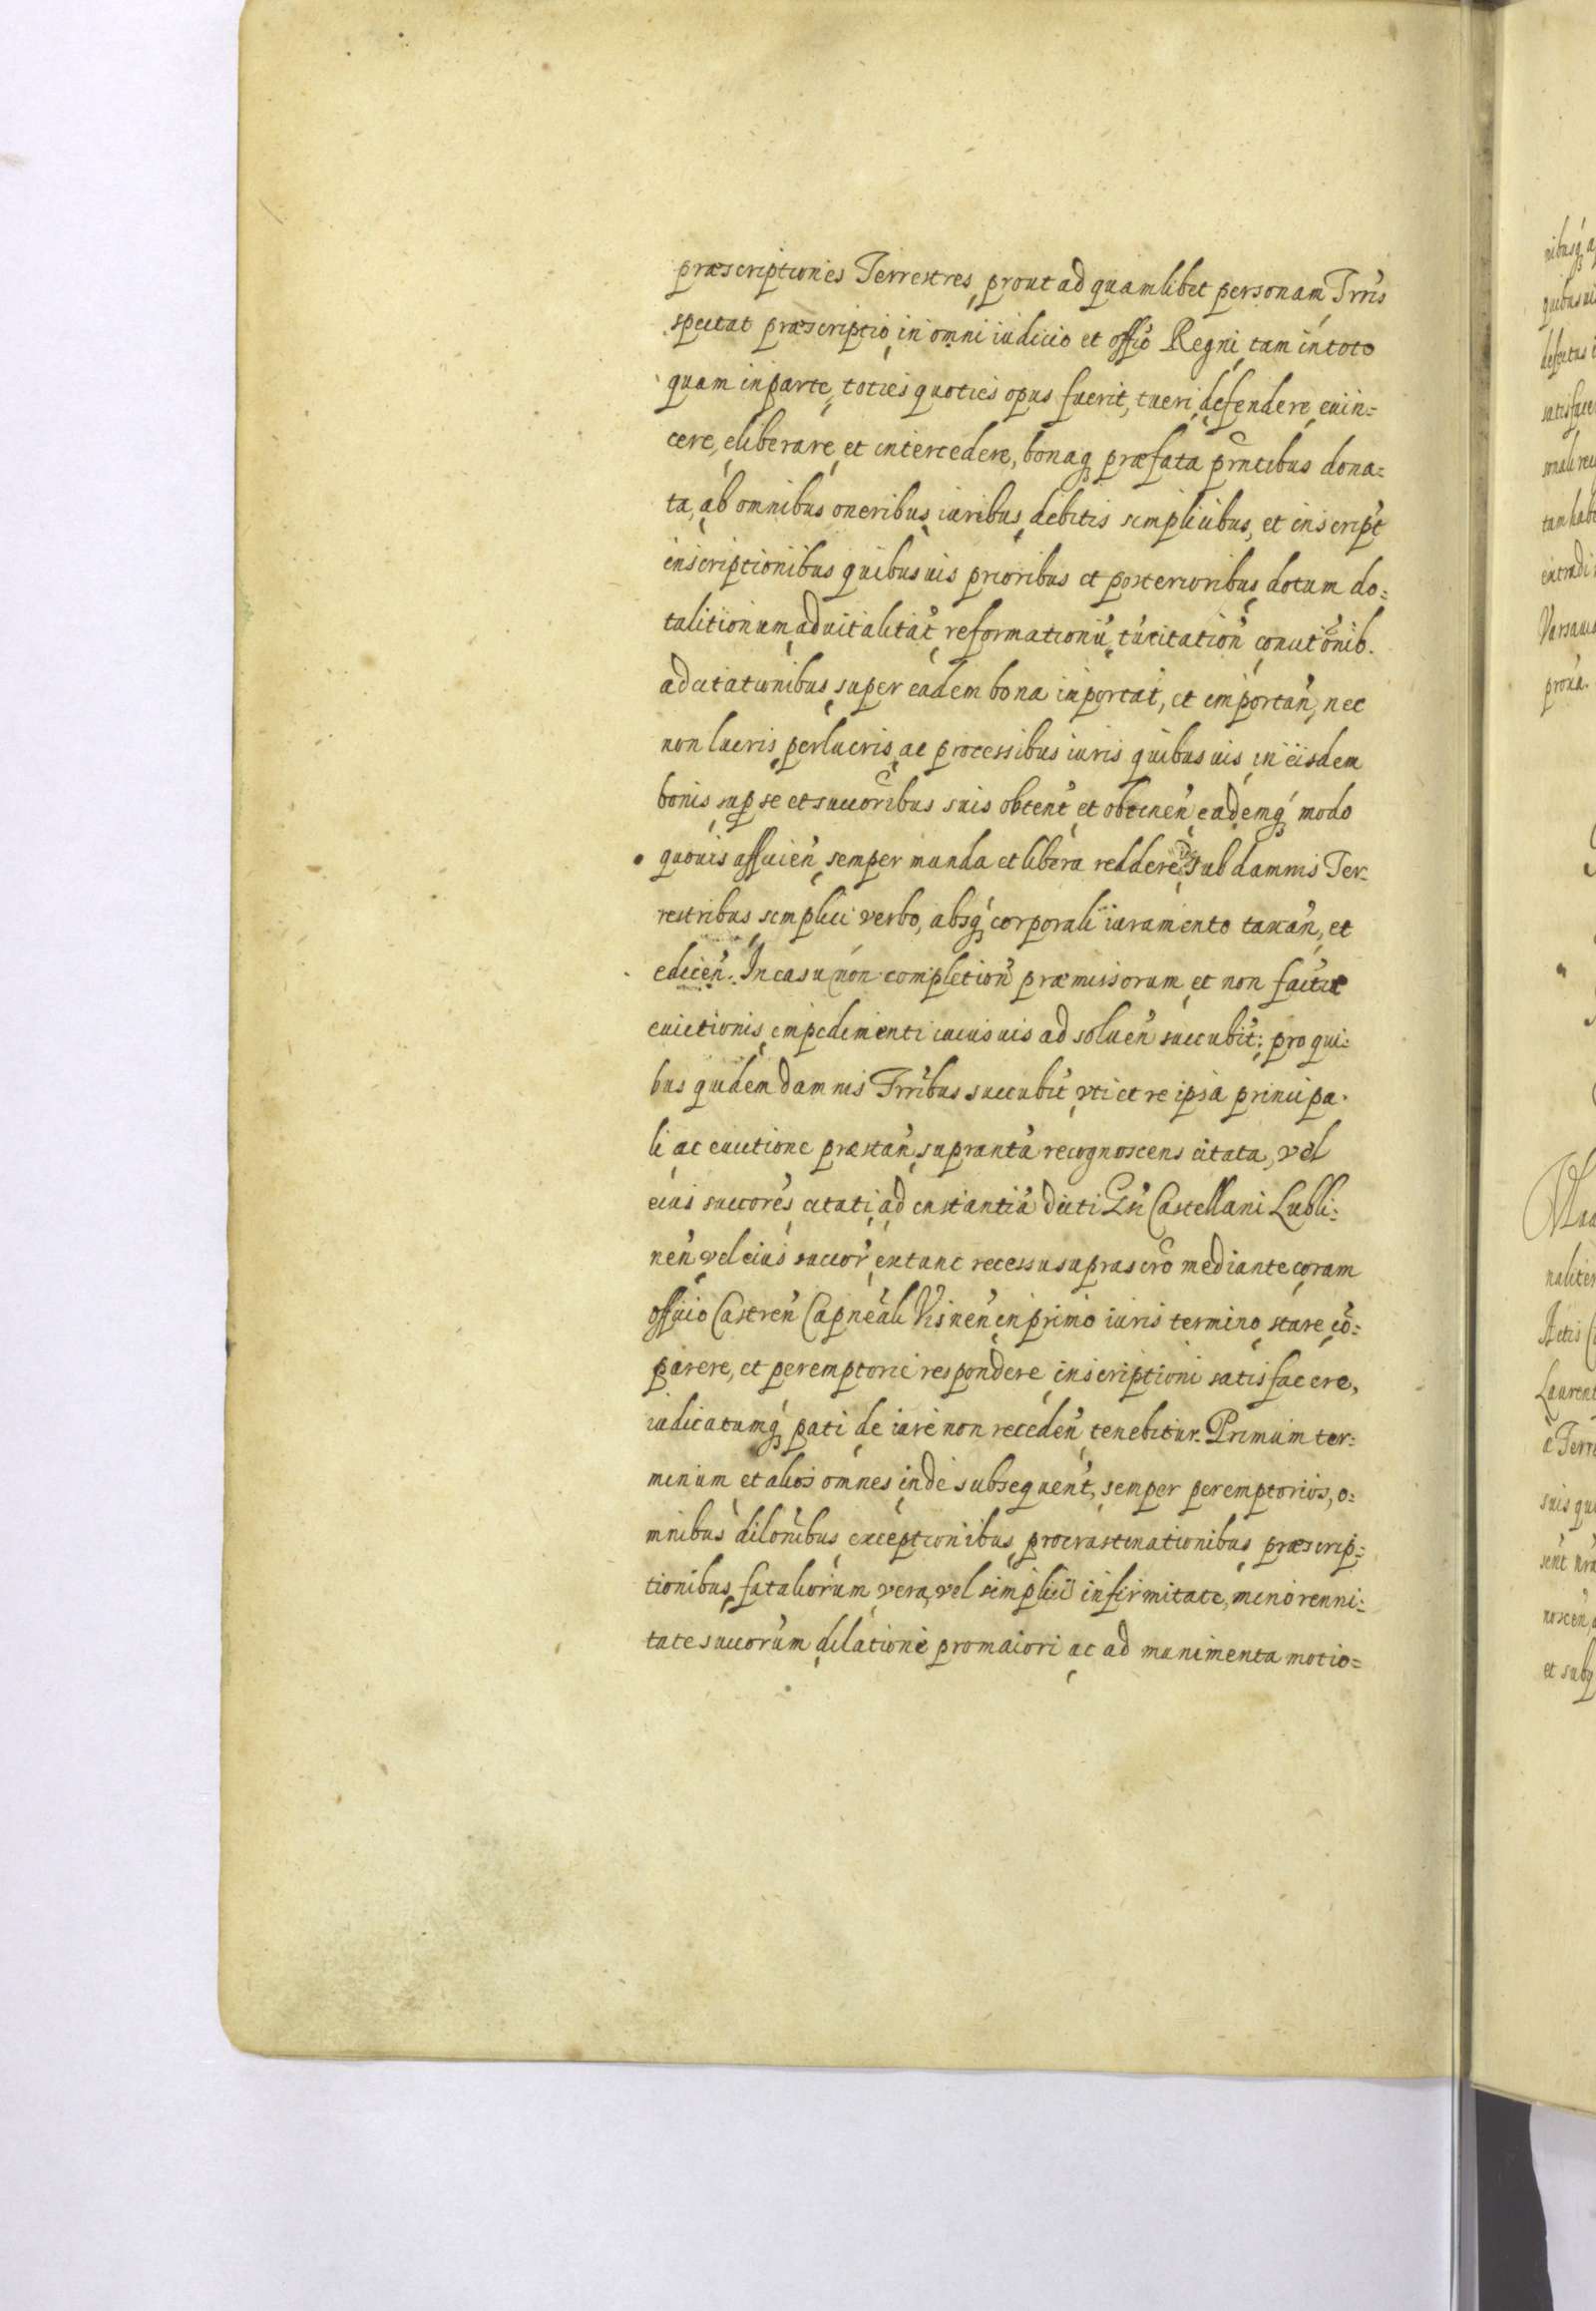 præscriptiones Terrestres, prout ad quamlibet personam Trris
spectat præscriptio, in omni iudicio et offo Regni, tam in toto
quam in parte, toties quoties opus fuerit, tueri, defendere, euin=
cere, eliberare, et intercedere, bonaq præfata prntibus dona=
ta, ab omnibus oneribus, iuribus, debitis simplicibus, et inscript
inscriptionibus quibusuis prioribus et posterioribus, dotum do=
talitionum, aduitalitat, reformationu,
adcitationibus, super eadem bona inportat, et importan, nec
non lucris, perlucris, ac processibus iuris quibusuis, in eisdem
bonis, sup se et succoribus suis obtent, et obtinen, eademq modo
quouis afficien, semper munda et libera reddere, sub damnis Ter-
restribus, simplici verbo, absq corporali iuramento taxan, et
edicen. In casu non completion præmissorum, et non factæ
euictionis, impedimenti cuiusuis ad soluen succubit; pro qui=
bus quidem damnis Trribus succubit, vti et re ipsa principa-
li, ac euictione præstan, supranta recognoscens citata, vel
eius succores citati, ad instantia dicti Gsi Castellani Lubli=
nen, vel eius succor, extunc recessu suprascro mediante, coram
officio Castren Capneali Visnen, in primo iuris termino, stare, co=
parere, et peremptorie respondere, inscriptioni satisfacere,
iudicatumq pati, de iure non receden, tenebitur. Primum ter=
minum et alios omnes, inde subsequent, semper peremptorios, o=
mnibus dilonibus, exceptionibus, procrastinationibus, præscrip=
tionibus, fataliorum, vera, vel simplici infirmitate, minorenni=
tate succorum, dilatione pro maiori, ac ad munimenta motio=
nibusq
quibusui
defectus
satisface
sonali
tam habi
Varsaui
naliter
Actis
Laurent
a Terre
suis qui
sent
noscen
et subq